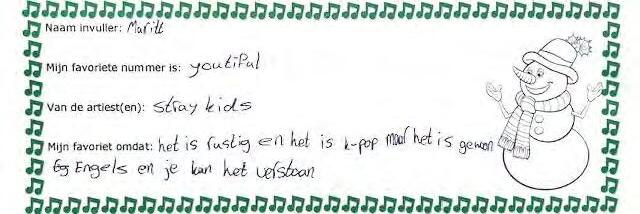 Naam invuller: Maritt
Mijn favoriete nummer is: youtiful
Van de artiest(en): stray kids
Mijn favoriet omdat: het is rustig en het is k-pop maar het is gewoon
Engels en je kan het verstaan